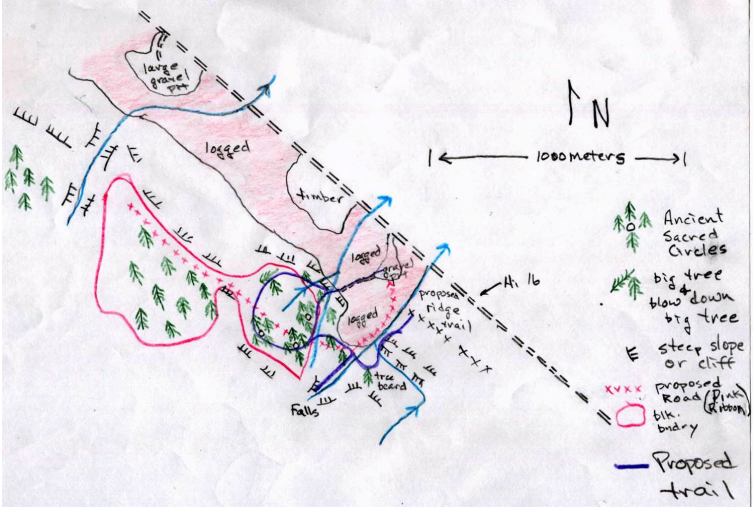 large
gravel
pit
logged
timber
logged
gravel
pit
logged
proposed
ridge
trail
tree
beard
Falls
Hi. 16
N
1000 meters
Ancient
Sacred
Circles
big tree
&
blow down
big tree
steep slope
or cliff
xxxx proposed
Road (Pink
Ribbon)
blk.
bndry
Proposed
trail